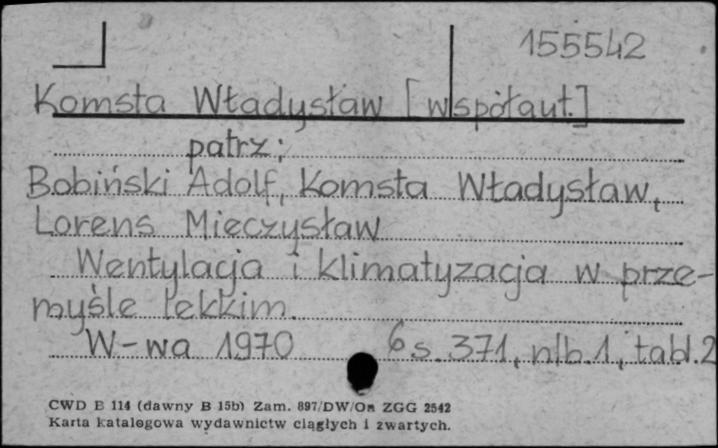 155542
Komsta Władysław [współaut.]
patrz:
Bobiński Adolf, Komsta Władysław,
Lorens Mieczysław
Wentylacja i klimatyzacja w prze-
myśle lekkim.
W-wa 1970 6 s. 371, nlb. 1, tabl. 2
CWD E 114 (dawny B 15b) Zam. 897/DW/On ZGG 2542
Karta katalogowa wydawnictw ciągłych i zwartych.